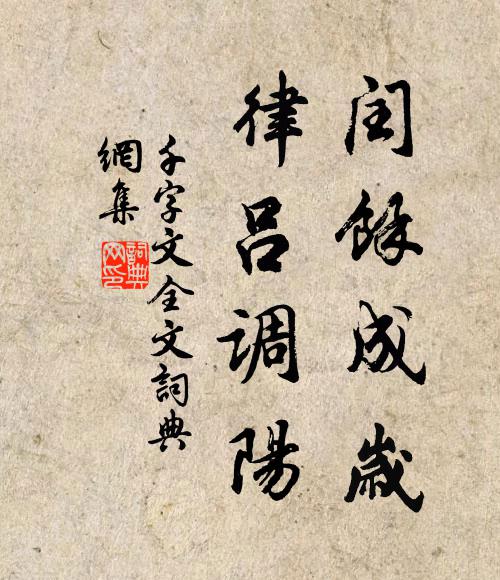 闰餘成歲
律吕調陽
千字文全文詞典
網集
詞典
网印